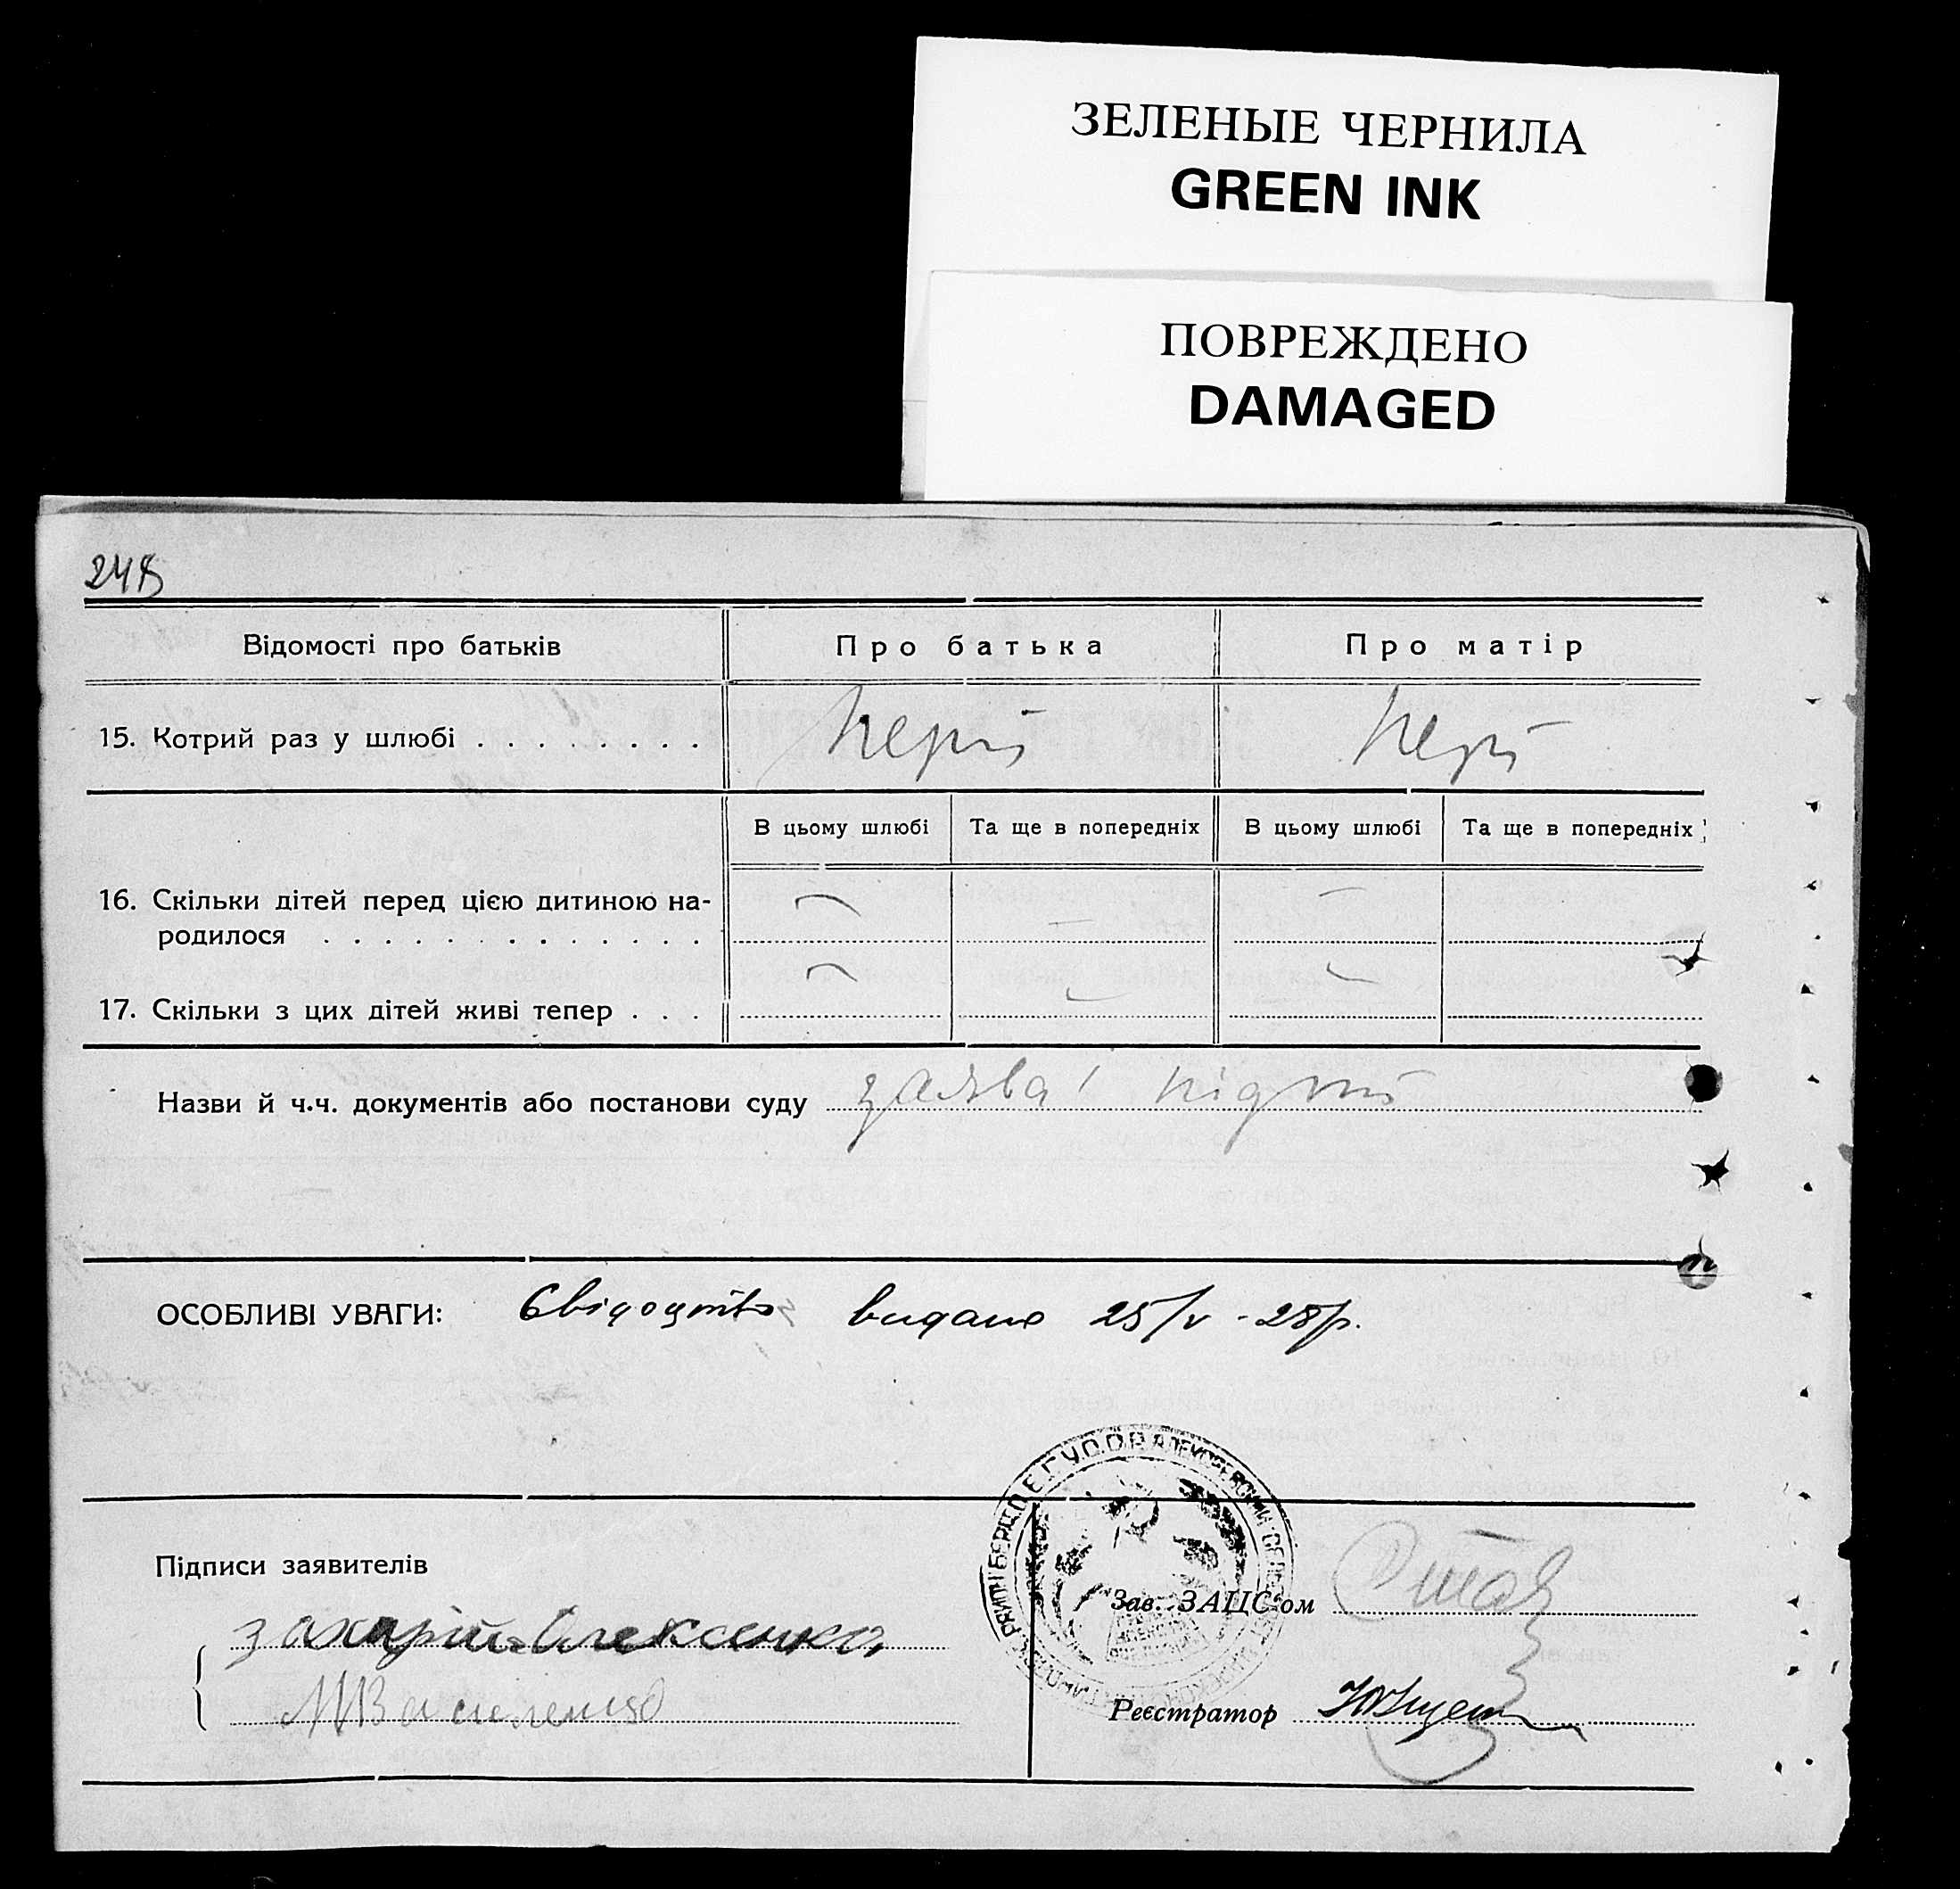 ЗЕЛЕНЫЕ ЧЕРНИЛА
GREEN INK
ПОВРЕЖДЕНО
DAMAGED
Відомості про батьків Про батька Про матір
15. Котрий раз у шлюбі . . . . . . . . перш
В цьому шлюбі Та ще в попередніх В цьому шлюбі Та ще в попередніх
16. Скільки дітей перед цією дитиною на-
родилося . . . . . . . . . . . . .
17. Скільки з цих дітей живі тепер . . .
Назви й ч.ч. документів або постанови суду заява і
ОСОБЛИВІ УВАГИ: Свідоцтво видано 25/V - 28 р.
Підписи заявителів
Зав. ЗАЦС'ом
захарій Олексенко
Реєстратор